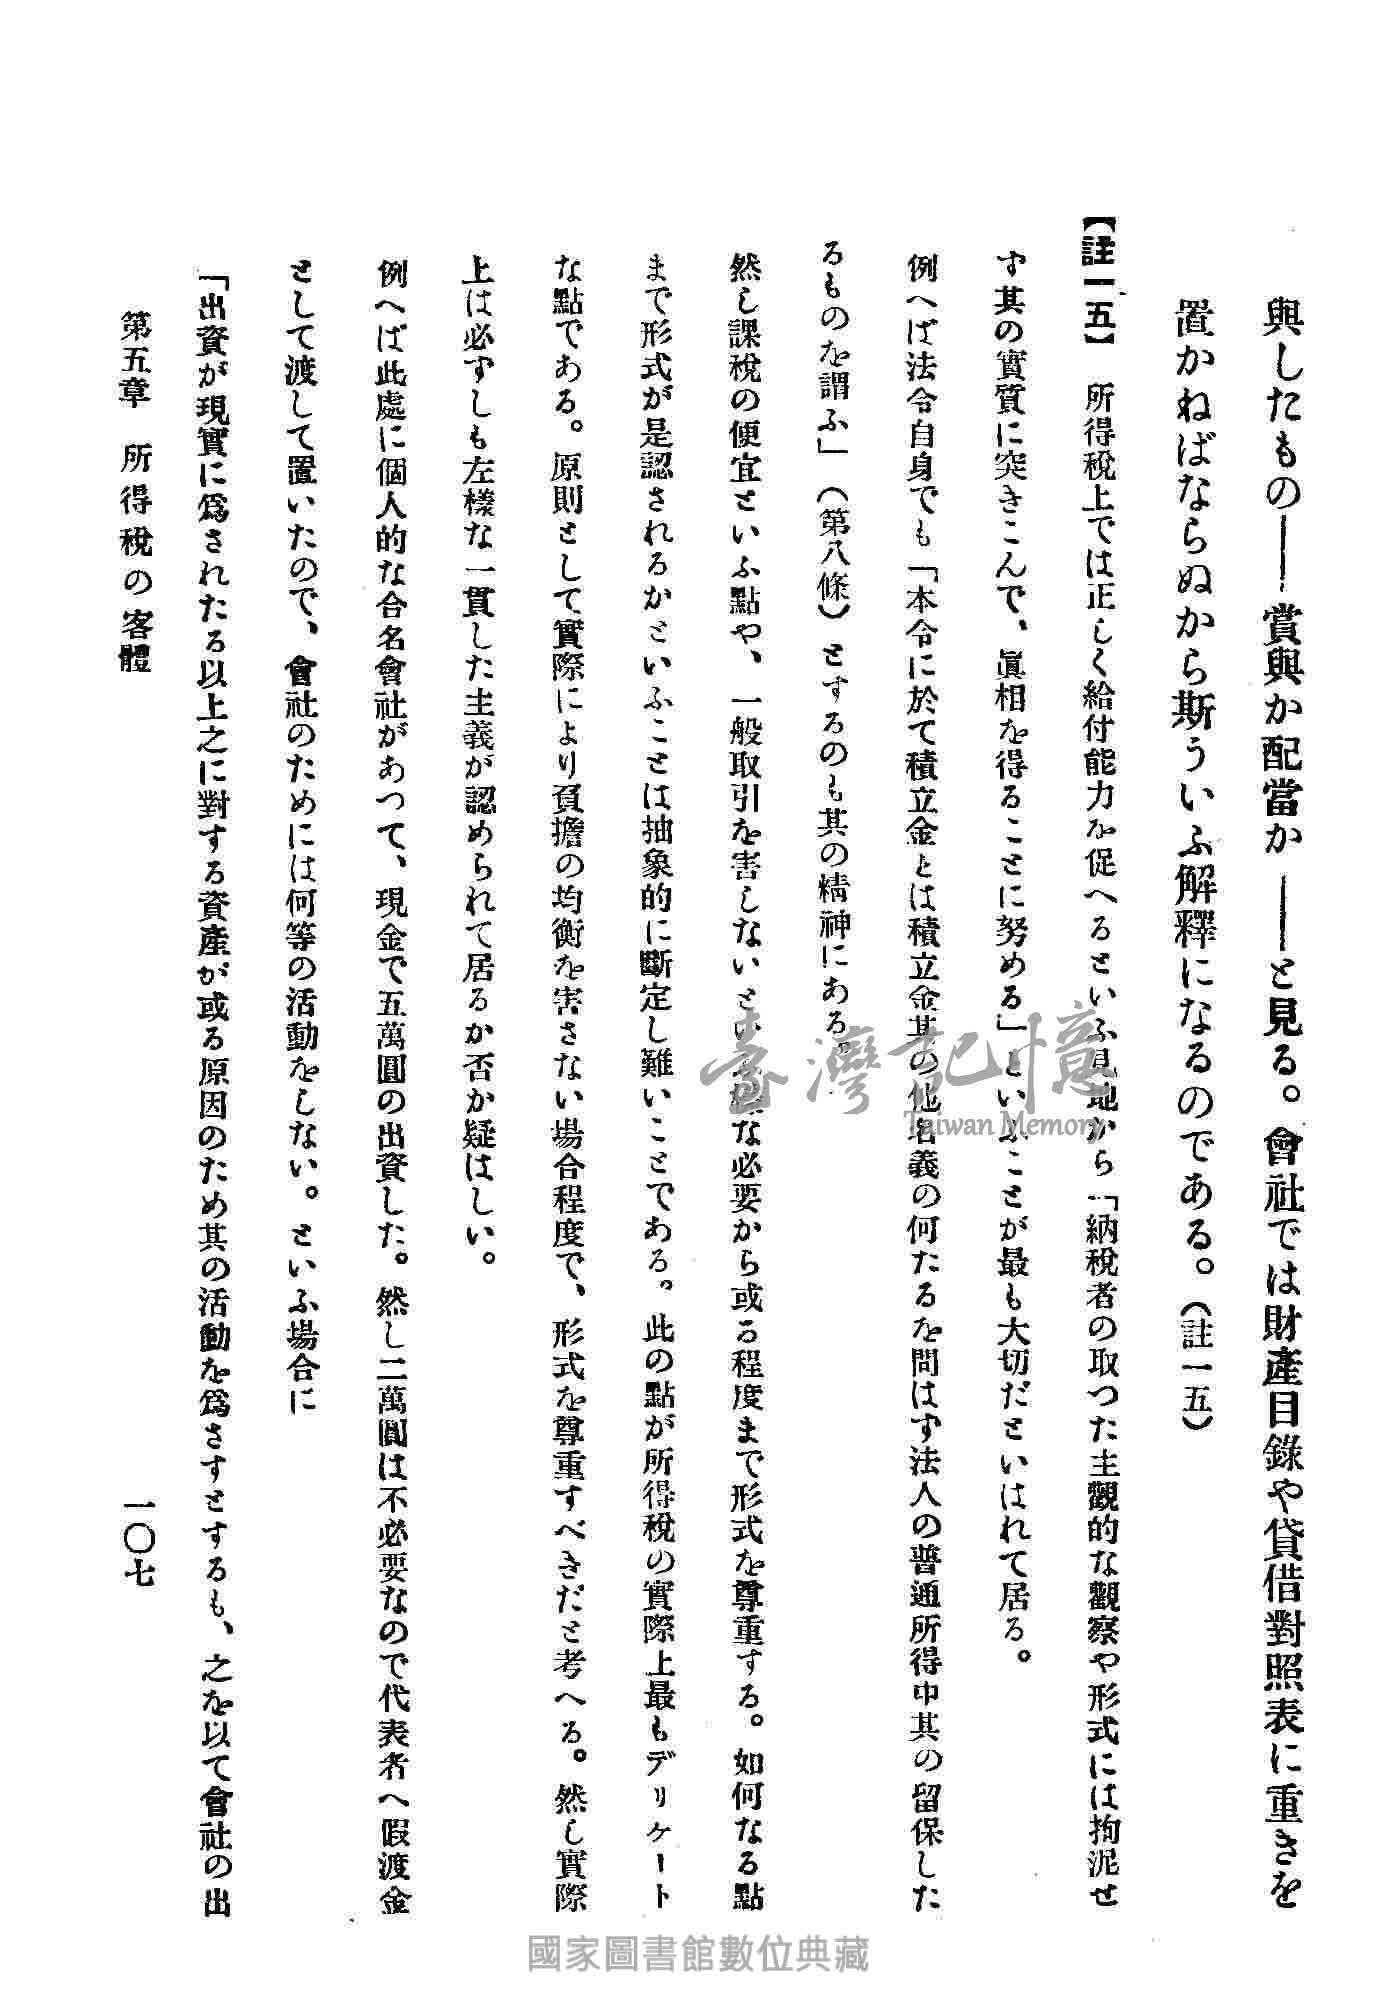 與したもの——賞與か配當か——と見る。會社では財產目錄や貸借對照表に重きを
置かねばならぬから斯ういふ解釋になるのである。（註一五）
【註一五】　所得稅上では正しく給付能力を促へるといふ見地から「納稅者の取つた主觀的な觀察や形式には拘泥せ
ず其の實質に突きこんで、眞相を得ることに努める」といふことが最も大切だといはれて居る。
例へば法令自身でも「本令に於て積立金とは積立金其の他名義の何たるを問はず法人の普通所得中其の留保した
るものを謂ふ」（第八條）とするのも其の精神にある。
然し課稅の便宜といふ點や、一般取引を害しないといふ樣な必要から或る程度まで形式を尊重する。如何なる點
まで形式が是認されるかといふことは抽象的に斷定し難いことである。此の點が所得稅の實際上最もデリケート
な點である。原則として實際により負擔の均衡を害さない場合程度で、形式を尊重すべきだと考へる。然し實際
上は必ずしも左樣な一貫した主義が認められて居るか否か疑はしい。
例へば此處に個人的な合名會社があつて、現金で五萬圓の出資した。然し二萬圓は不必要なので代表者へ假渡金
として渡して置いたので、會社のためには何等の活動をしない。といふ場合に
「出資が現實に爲されたる以上之に對する資產が或る原因のため其の活動を爲さずとするも、之を以て會社の出
第五章　所得稅の客體
一〇七
臺灣記憶
Taiwan Memory
國家圖書館數位典藏